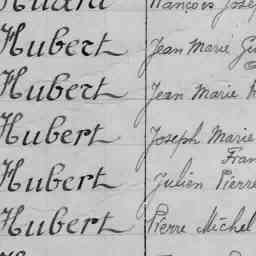 François Josep
Hubert Jean Marie
Hubert Jean Marie
Hubert Joseph Marie
Fran
Hubert Julien Pierre
Hubert Pierre Michel